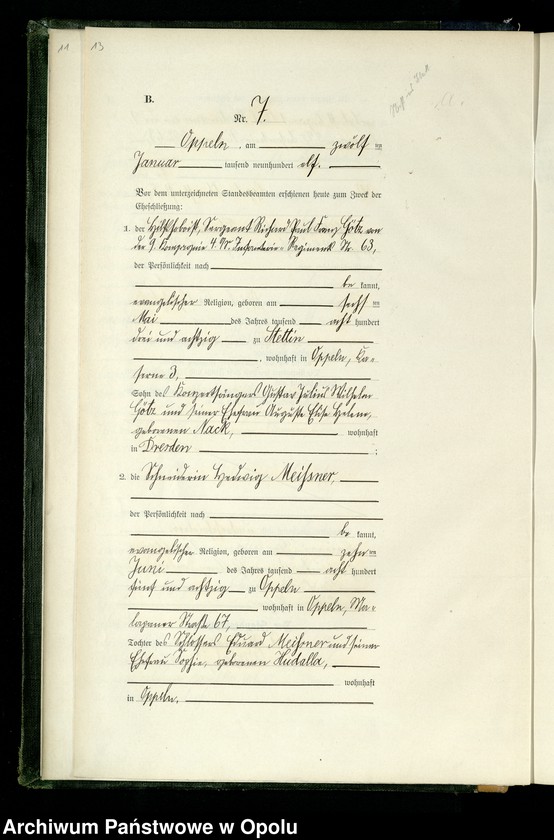 11 13
B.
Nr. 7.
Oppeln, am zwölf ten
Januar tausend neunhundert elf.
Vor dem unterzeichneten Standesbeamten erschienen heute zum Zweck der
Eheschließung:
1. der Hilfshoboist, Sergeant Richard Paul Franz Götz von
der 9. Kompagnie 4. O. Infanterie-Regiment Nr. 63,
der Persönlichkeit nach
be kannt,
evangelischer Religion, geboren am sechs ten
Mai des Jahres tausend acht hundert
drei und achtzig zu Stettin
, wohnhaft in Oppeln, Ka-
serne 3,
Sohn des Konzertsängers Gustav Julius Wilhelm
Götz und seiner Ehefrau Auguste Elise Helene,
geborenen Nack, wohnhaft
in Dresden ;
2. die Schneiderin Hedwig Meißner,
der Persönlichkeit nach
be kannt,
evangelischer Religion, geboren am zehn ten
Juni des Jahres tausend acht hundert
fünf und achtzig zu Oppeln
wohnhaft in Oppeln, Ma-
lapaner Straße 67,
Tochter des Schlossers Eduard Meißner und seiner
Ehefrau Sophie, geborenen Hudalla,
wohnhaft
in Oppeln.
Archiwum Państwowe w Opolu